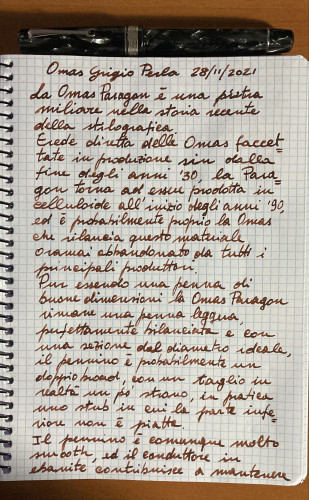 Omas Grigio Perla 28/11/2021
La Omas Paragon è una pietra
miliare nella storia recente
della stilografica.
Erede diretta delle Omas faccet-
tate in produzione sin dalla
fine degli anni '30, la Para-
gon torna ad essere prodotta in
celluloide all'inizio degli anni '90,
ed è probabilmente proprio la Omas
che rilancia questo materiale
oramai abbandonato da tutti i
principali produttori.
Pur essendo una penna di
buone dimensioni la Omas Paragon
rimane una penna leggera,
perfettamente bilanciata e con
una sezione dal diametro ideale,
il pennino è probabilmente un
doppio broad, con un taglio in
realtà un po' strano, in pratica
uno stub in cui la parte infe-
riore non è piatta.
Il pennino è comunque molto
smooth, ed il conduttore in
ebanite contribuisce a mantenere